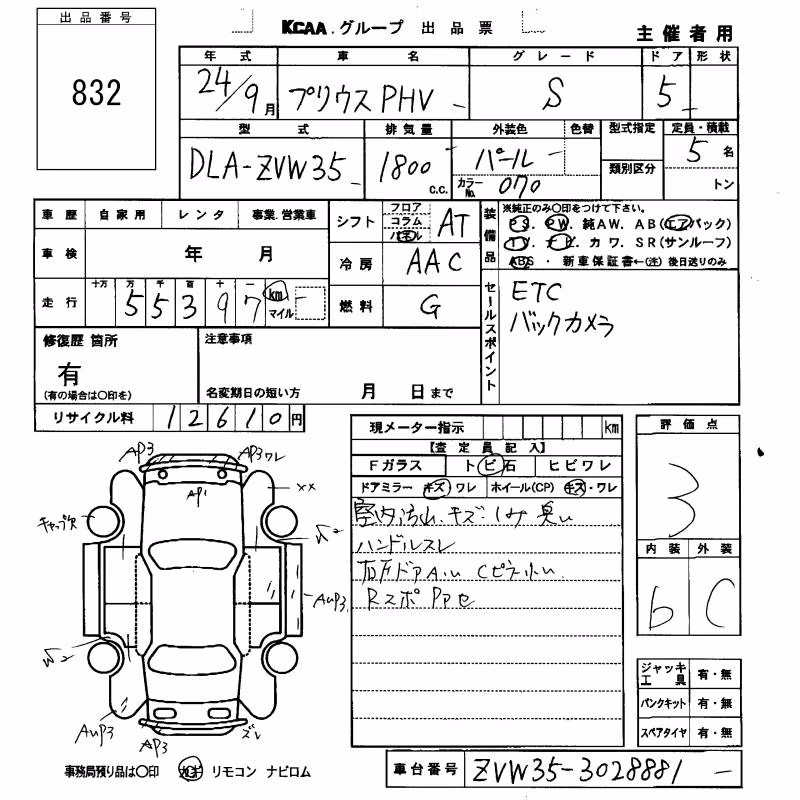 出品番号
832
KCAA.グループ 出品票
主催者用
年式 車名 グレード ドア 形状
24/9月 プリウスPHV S 5
型式 排気量 外装色 色替 型式指定 定員・積載
DLA-ZVW35 1800 c.c. パール 類別区分 5名
カラーNo. 070 トン
車歴 自家用 レンタ 事業.営業車
車検 年 月
走行 十万 万 千 百 十 一
55397 km マイル
シフト フロア コラム パネル AT
冷房 AAC
燃料 G
装備品
※純正のみ○印をつけて下さい。
PS. PW. 純AW. AB(エアバック)
TV. ナビ. カワ. SR(サンルーフ)
ABS ・ 新車保証書←(注)後日送りのみ
セールスポイント
ETC
バックカメラ
修復歴 箇所
有
(有の場合は○印を)
注意事項
名変期日の短い方 月 日まで
リサイクル料 12610円
現メーター指示 km
【査定員記入】
Fガラス トビ石 ヒビワレ
ドアミラー キズ ワレ ホイール(CP) キズ・ワレ
室内汚れ.キズ
ハンドルスレ
評価点
3
内装 外装
b C
AP3 AP3ワレ
AP1
××
キャップ欠
AUP3
AUP3
AP3
ズレ
ジャッキ工具 有・無
パンクキット 有・無
スペアタイヤ 有・無
事務局預り品は○印 カギ リモコン ナビロム
車台番号 ZVW35-3028881